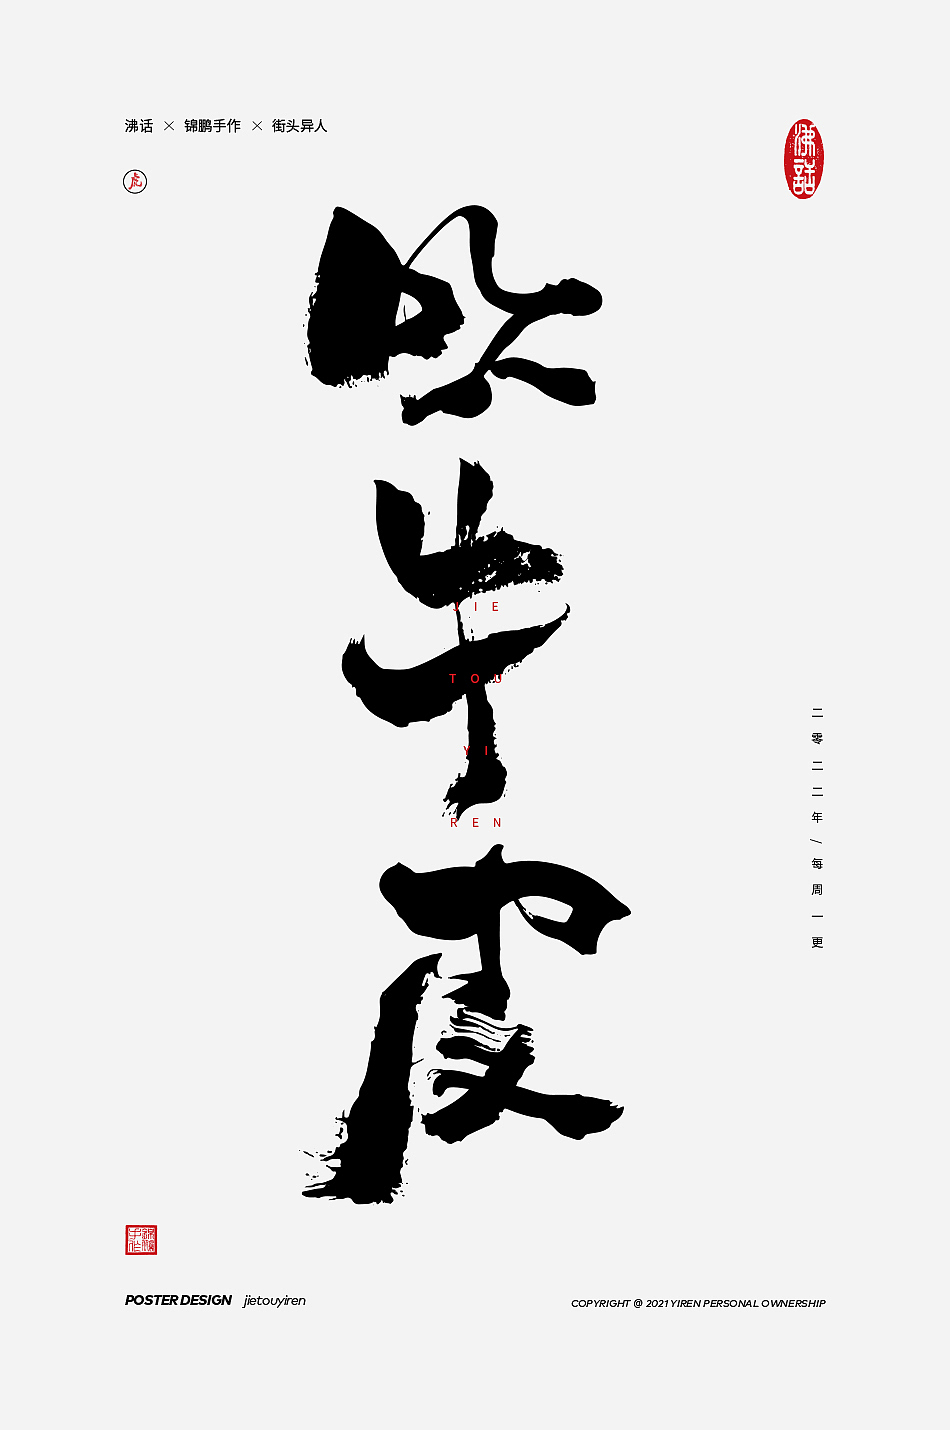 沸话 × 锦鹏手作 × 街头异人
虎
沸話
吹牛皮
JIE
TOU
YI
REN
二零二二年/每周一更
锦鹏手作
POSTER DESIGN jietouyiren
COPYRIGHT @ 2021 YIREN PERSONAL OWNERSHIP